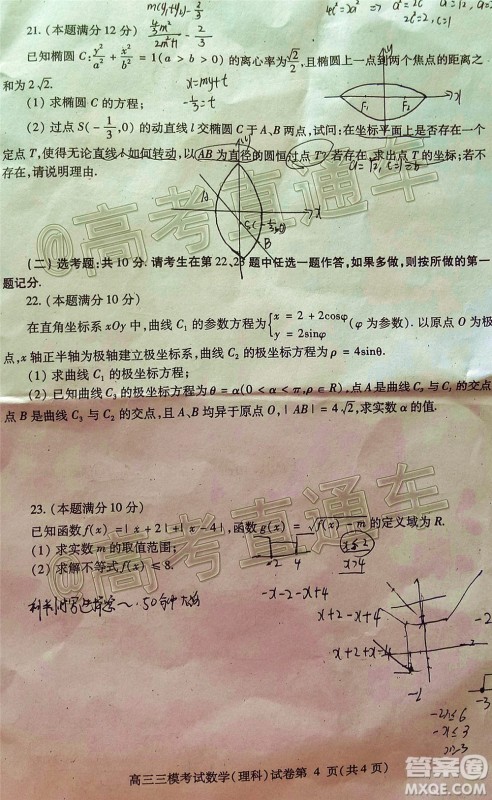 m(y₁+y₂)-2/3
a²=2c²
2c=2, c=1
21. (本题满分 12 分)
已知椭圆 C: y²/a² + x²/b² = 1(a > b > 0) 的离心率为 √2/2, 且椭圆上一点到两个焦点的距离之
和为 2√2.
x=my+t
-1/3=t
(1) 求椭圆 C 的方程;
(2) 过点 S(-1/3,0) 的动直线 l 交椭圆 C 于 A、B 两点,试问:在坐标平面上是否存在一个
定点 T,使得无论直线 l 如何转动,以 AB 为直径的圆恒过点 T? 若存在,求出点 T 的坐标;若不
存在,请说明理由.
(二) 选考题:共 10 分. 请考生在第 22、23 题中任选一题作答,如果多做,则按所做的第一
题记分.
22. (本题满分 10 分)
在直角坐标系 xOy 中,曲线 C₁ 的参数方程为 {x = 2 + 2cosφ
y = 2sinφ (φ 为参数). 以原点 O 为极
点,x 轴正半轴为极轴建立极坐标系,曲线 C₂ 的极坐标方程为 ρ = 4sinθ.
(1) 求曲线 C₁ 的极坐标方程;
(2) 已知曲线 C₃ 的极坐标方程为 θ = α(0 < α < π, ρ ∈ R), 点 A 是曲线 C₃ 与 C₁ 的交点,
点 B 是曲线 C₃ 与 C₂ 的交点,且 A、B 均异于原点 O, | AB | = 4√2, 求实数 α 的值.
23. (本题满分 10 分)
已知函数 f(x) = | x + 2 | + | x - 4 |, 函数 g(x) = √(f(x) - m) 的定义域为 R.
(1) 求实数 m 的取值范围;
(2) 求解不等式 f(x) ≤ 8.
-2 4
x≤-2
x>4
-x-2-x+4
x+2-x+4
x+2+x-4
-2x≤6
-x≤3
高三三模考试数学(理科)试卷第 4 页(共 4 页)
高考直通车
高考直通车
答案圈
MXQE.COM